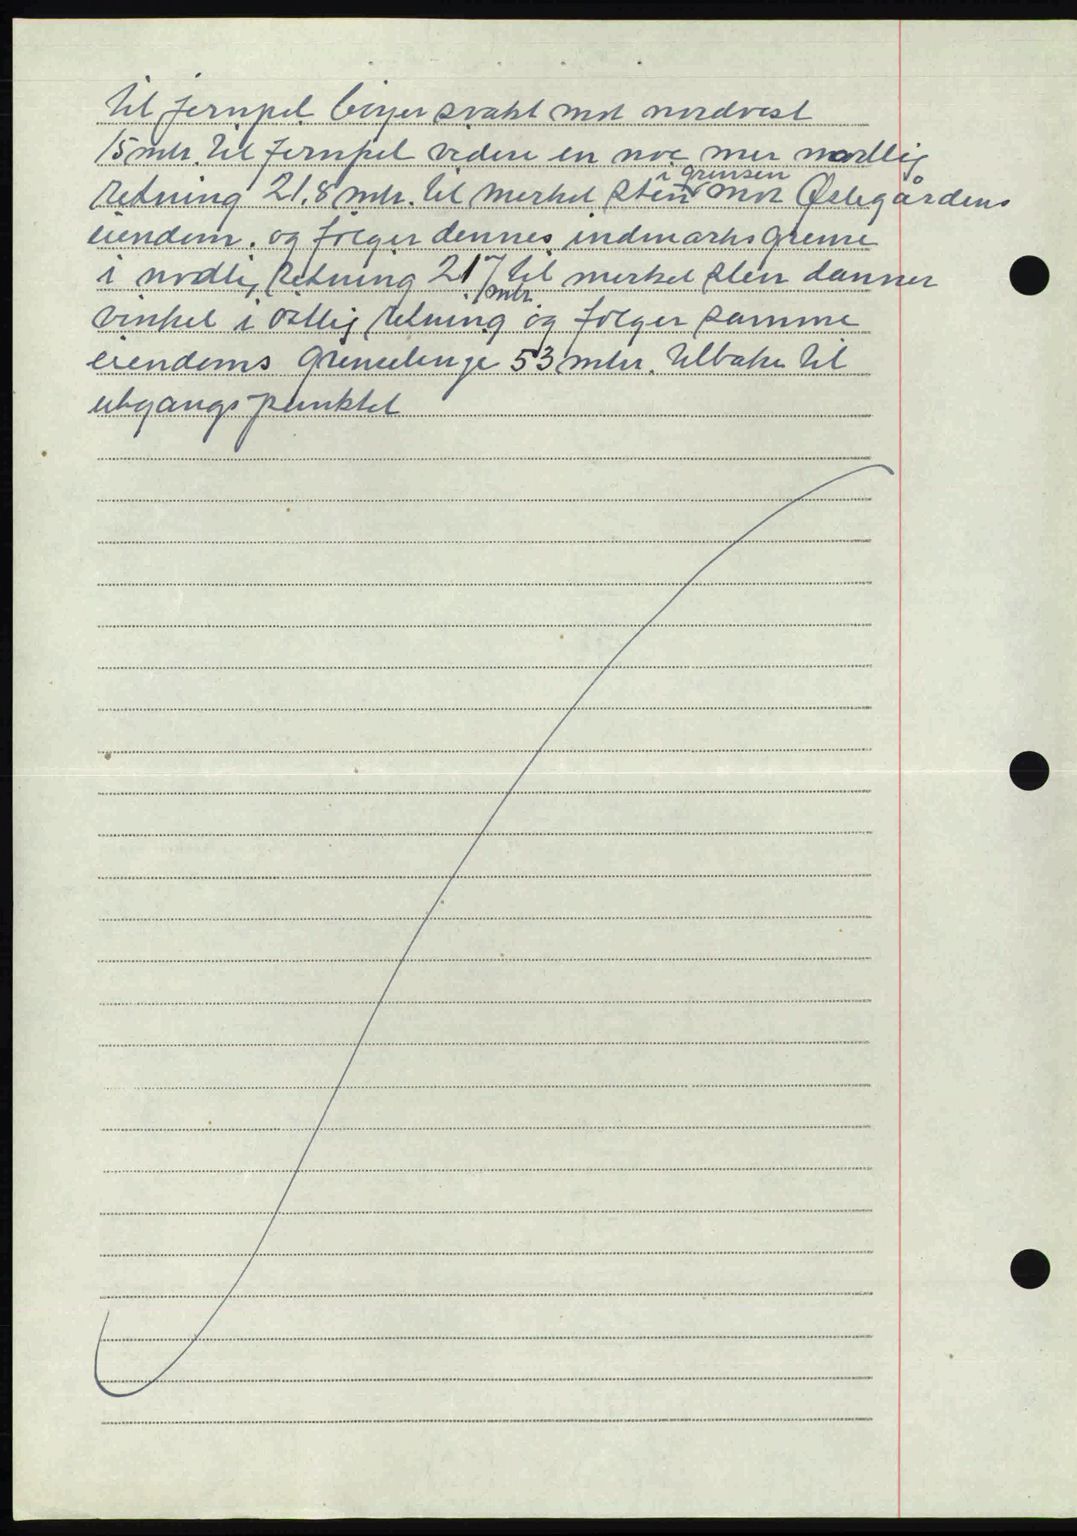 til jernpel böyer svakt mot nordvest
15 mtr. til jernpel videre en noe mer nordlig
i grensen
retning 21.8 mtr. til merket sten mot Østegårdens
eiendom. og følger dennes indmarksgrense
i nordlig retning 217 til merket sten danner
mtr.
vinkel i östlig retning og følger samme
eiendoms grenselinje 53 mtr. tilbake til
utgangspunktet